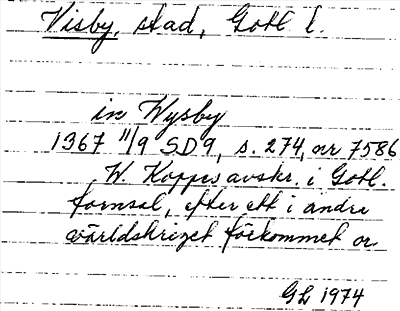 Visby, stad, Gotl. l.
in Wysby
1367 11/9 SD9, s. 274, nr 7586
W. Koppes avskr. i Gotl.
fornsal, efter ett i andra
världskriget förkommet or
GL 1974